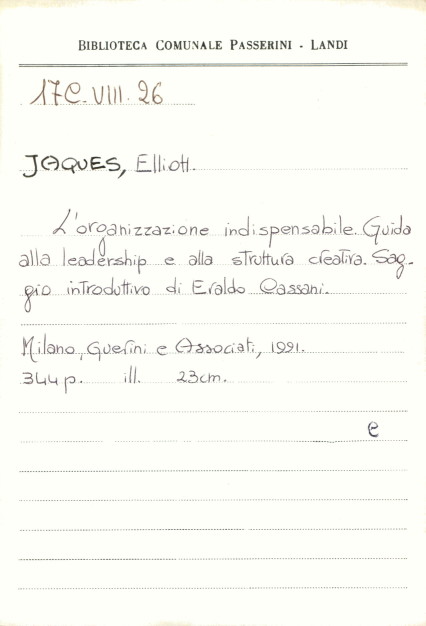 BIBLIOTECA COMUNALE PASSERINI - LANDI
17C.VIII.26
JAQUES, Elliott.
L'organizzazione indispensabile. Guida
alla leadership e alla struttura creativa. Sag-
gio introduttivo di Eraldo Cassani.
Milano, Guerini e Associati, 1991.
344 p. ill. 23cm.
e